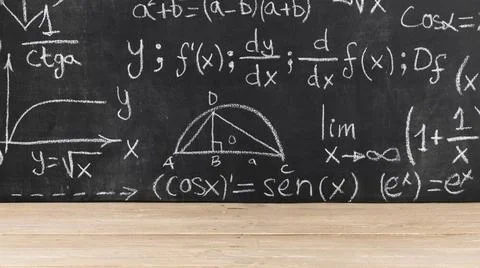 a²+b=(a-b)(a+b)
cosx=
1/ctga
y; f'(x); dy/dx; d/dx f(x); Df
(x
y
D
O
A B a C
x
y=√x
lim x→∞ (1+1/x
(cosx)'=sen(x) (eˣ)=eˣ